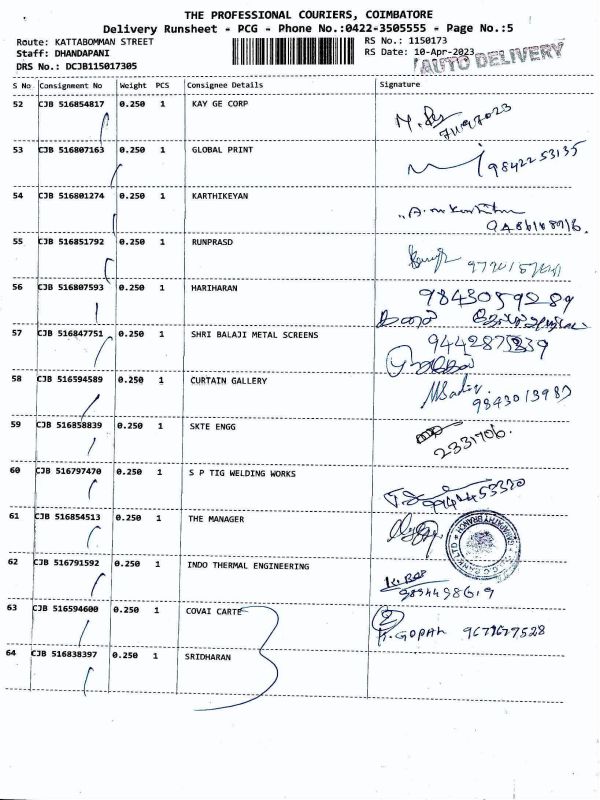 THE PROFESSIONAL COURIERS, COIMBATORE
Delivery Runsheet - PCG - Phone No.:0422-3505555 - Page No.:5
Route: KATTABOMMAN STREET RS No.: 1150173
Staff: DHANDAPANI RS Date: 10-Apr-2023
DRS No.: DCJB115017305 AUTO DELIVERY
S No Consignment No Weight PCS Consignee Details Signature
52 CJB 516854817 0.250 1 KAY GE CORP
53 CJB 516807163 0.250 1 GLOBAL PRINT 9842253135
54 CJB 516801274 0.250 1 KARTHIKEYAN
55 CJB 516851792 0.250 1 RUNPRASD
56 CJB 516807593 0.250 1 HARIHARAN 9843059289
57 CJB 516847751 0.250 1 SHRI BALAJI METAL SCREENS
58 CJB 516594589 0.250 1 CURTAIN GALLERY
59 CJB 516858839 0.250 1 SKTE ENGG 2331706.
60 CJB 516797470 0.250 1 S P TIG WELDING WORKS
61 CJB 516854513 0.250 1 THE MANAGER
62 CJB 516791592 0.250 1 INDO THERMAL ENGINEERING
63 CJB 516594600 0.250 1 COVAI CARTE GOPAL
64 CJB 516838397 0.250 1 SRIDHARAN